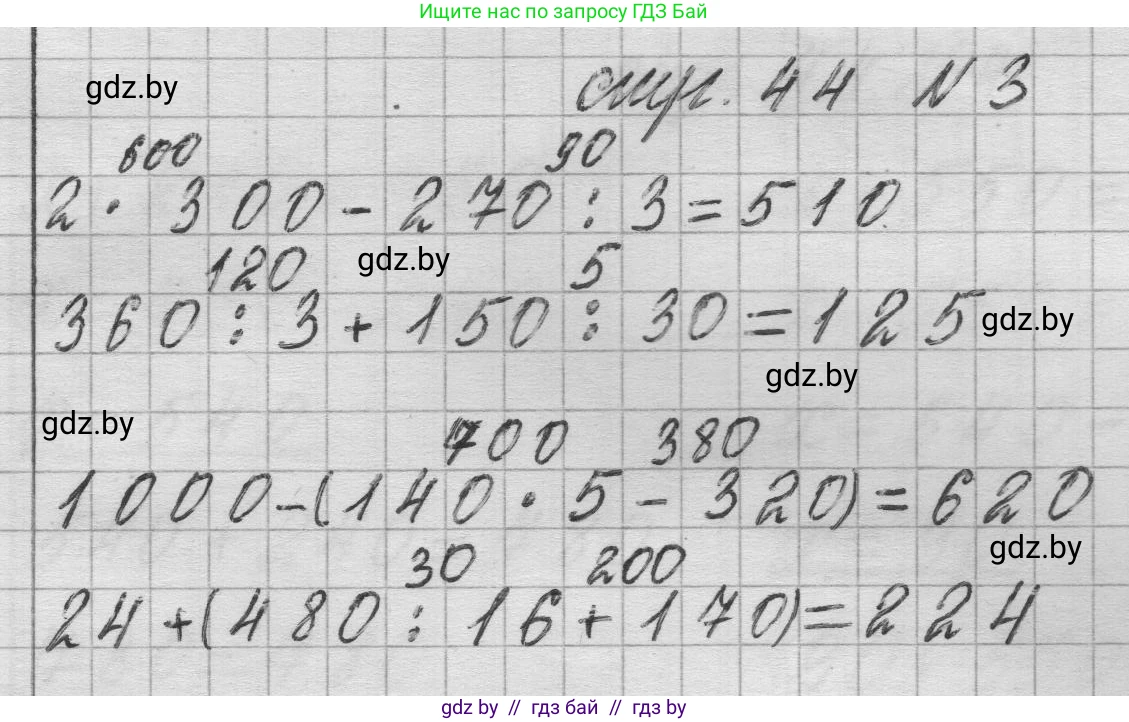 Ищите нас по запросу ГДЗ Бай
gdz.by
стр. 44 N 3
600 90
2 · 300 - 270 : 3 = 510
120 gdz.by 5
360 : 3 + 150 : 30 = 125 gdz.by
gdz.by
gdz.by
700 380
1000 - (140 · 5 - 320) = 620
gdz.by
30 200
24 + (480 : 16 + 170) = 224
gdz by // гдз бай // гдз by